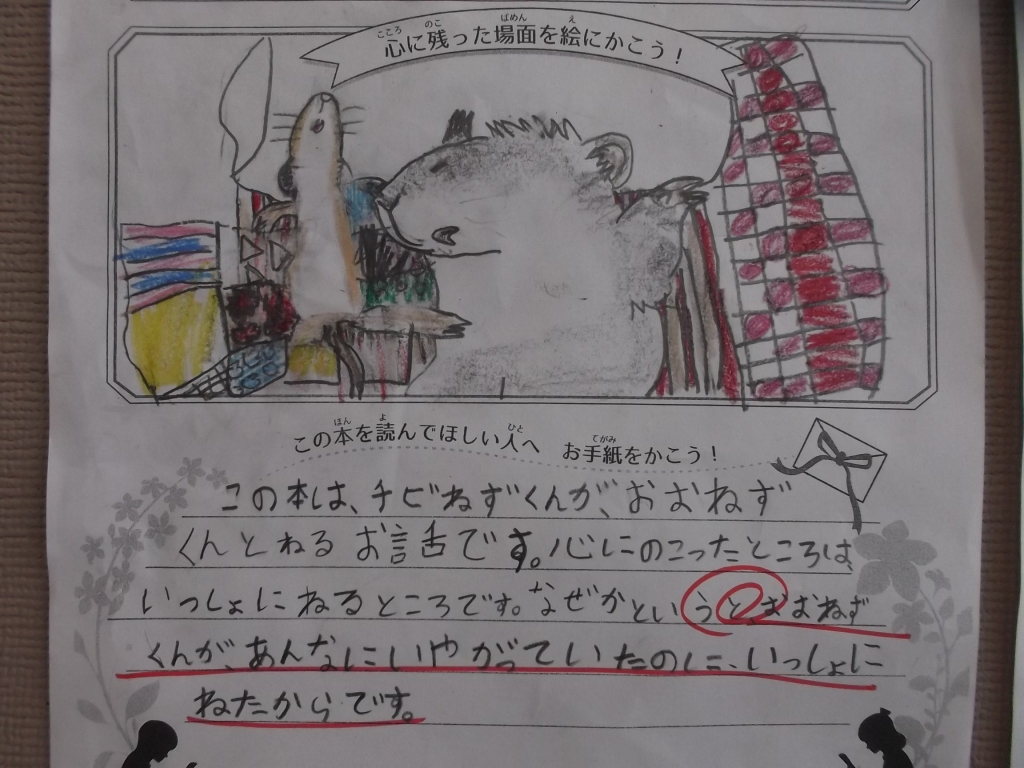 心に残った場面を絵にかこう！
この本を読んでほしい人へ お手紙をかこう！
この本は、チビねずくんが、おおねず
くんとねるお話です。心にのこったところは、
いっしょにねるところです。なぜかというと、おおねず
くんが、あんなにいやがっていたのに、いっしょに
ねたからです。